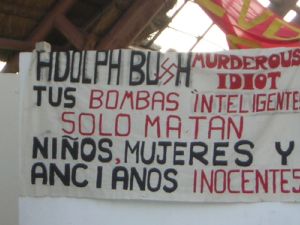 ADOLPH BU卐H MURDEROUS
IDIOT
TUS BOMBAS INTELIGENTE
SOLO MATAN
NIÑOS, MUJERES Y
ANCIANOS INOCENTES